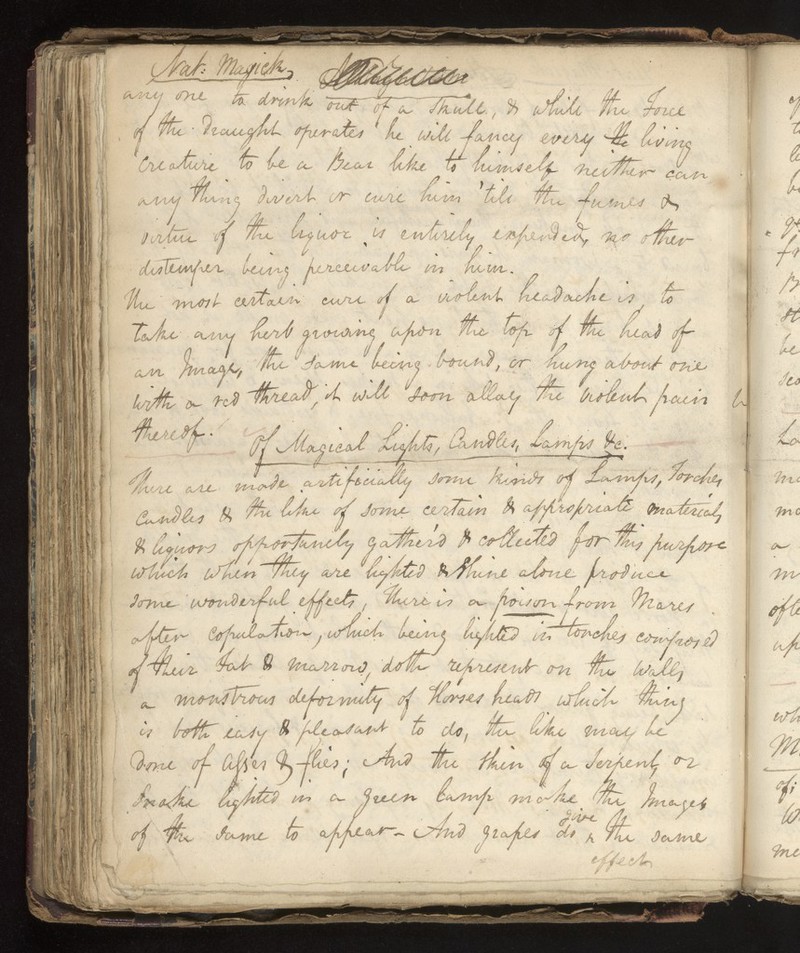 Nat: Magick,
any one to drink out of a Skull, & while the Force
of the Draught operates he will fancy every the living
Creature to be a Bear like to himself neither can
any thing divert or cure him 'till the fumes &
virtue of the liquor is entirely expended, no other
distemper being perceivable in him.
The most certain cure of a violent headache is to
take any herb growing upon the top of the head of
an Image, the same being bound, or hung about one
with a red thread, it will soon allay the violent pain
thereof.
Of Magical Lights, Candles, Lamps &c.
There are made artificially some kinds of Lamps, Torches
Candles & the like of some certain & appropriate materials
& liquors opportunely gather'd & collected for this purpose
which when they are lighted & Shine alone produce
some wonderful effects, There is a poison from Mares
after copulation, which being lighted in torches composed
of their Fat & marrow, doth represent on the walls
a monstrous deformity of Horses heads which thing
is both easy & pleasant to do, the like may be
done of Asses & flies; And the Skin of a Serpent, or
Snake lighted in a green lamp make the Images
of the same to appear - And grapes do give the same
effect